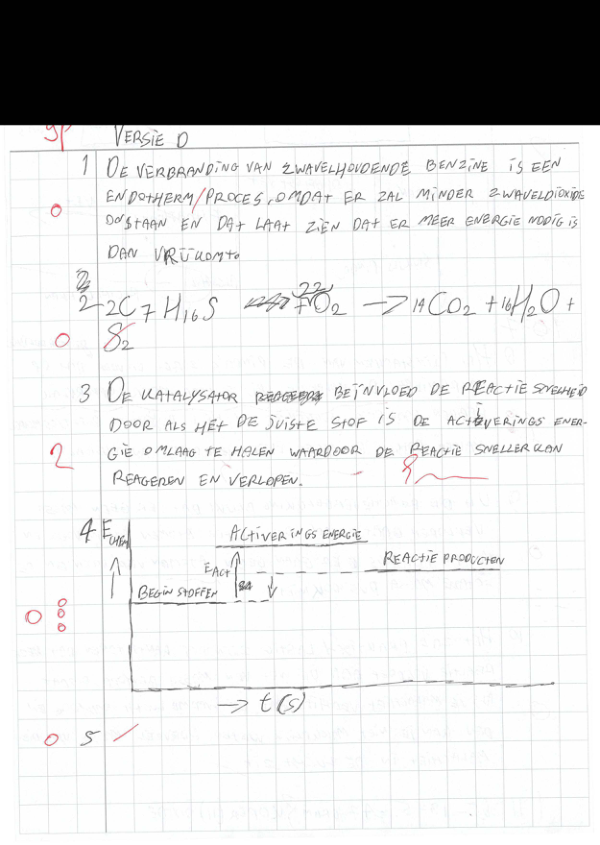 9P VERSIE D
1 DE VERBRANDING VAN ZWAVELHOUDENDE BENZINE IS EEN
ENDOTHERM/PROCES, OMDAT ER ZAL MINDER ZWAVELDIOXIDE
ONSTAAN EN DAT LAAT ZIEN DAT ER MEER ENERGIE NODIG IS
0
DAN VRIJKOMT.
2 2C7H16S 22O2 -> 14CO2 + 16H2O +
0 S2
3 DE KATALYSATOR BEÏNVLOED DE REACTIE SNELHEID
DOOR ALS HET DE JUISTE STOF IS DE ACTIVERINGS ENER-
2 GIE OMLAAG TE HALEN WAARDOOR DE REACTIE SNELLER KAN
REAGEREN EN VERLOPEN.
4 ECHEM ACTIVERINGS ENERGIE
REACTIE PRODUCTEN
EACT
BEGIN STOFFEN
0 0
0
0
-> t(s)
0 5